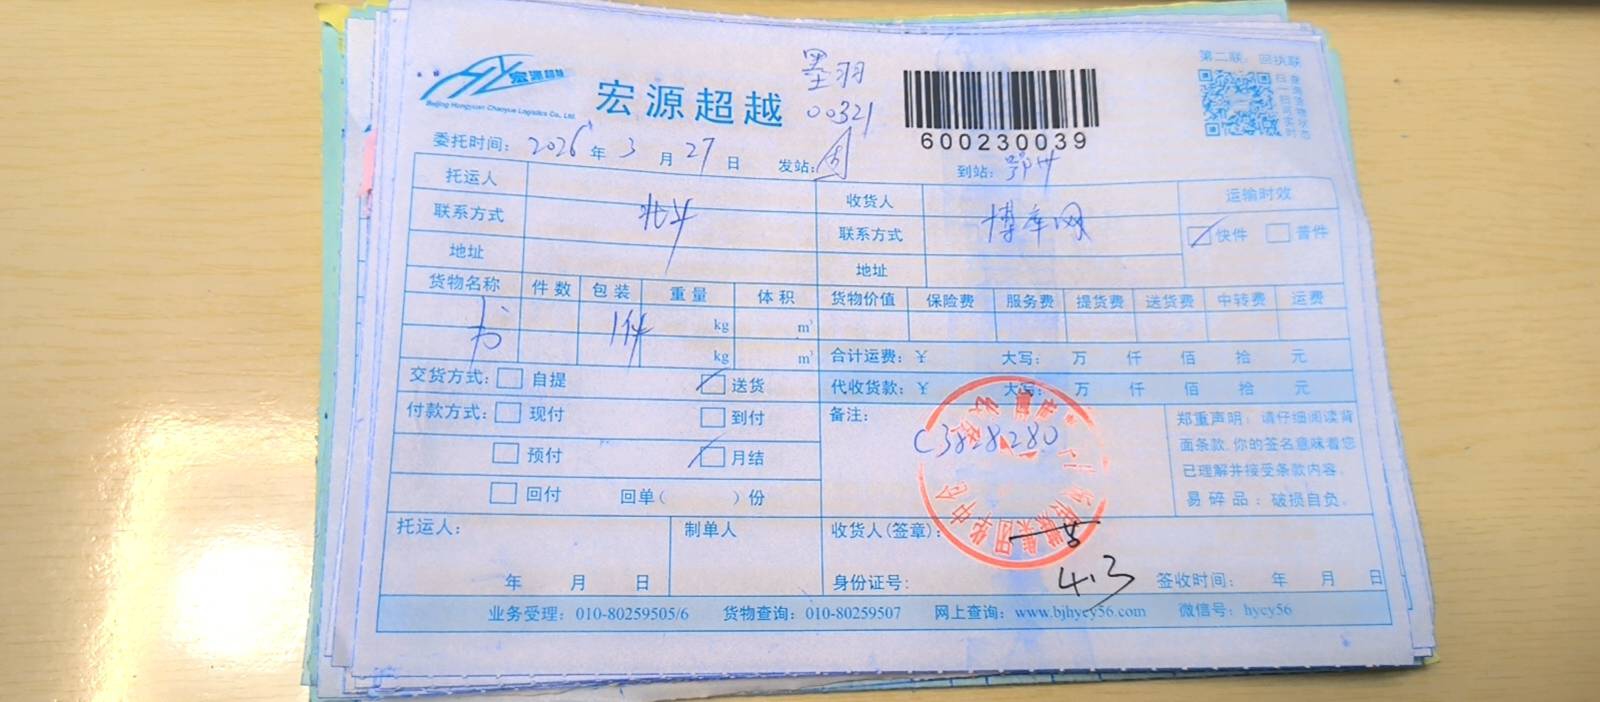 第二联：回执联
宏源超越
Beijing Hongyuan Chaoyue Logistics Co., Ltd.
宏源超越
墨羽
00321
600230039
扫一扫 查询货物实时状态
委托时间： 2026 年 3 月 27 日 发站： 到站： 鄂州
托运人 收货人 运输时效
联系方式 北斗 联系方式 博库网 快件 普件
地址 地址
货物名称 件数 包装 重量 体积 货物价值 保险费 服务费 提货费 送货费 中转费 运费
书 1件 kg m³
kg m³ 合计运费：￥ 大写： 万 仟 佰 拾 元
交货方式： 自提 送货 代收货款：￥ 大写： 万 仟 佰 拾 元
付款方式： 现付 到付 备注： 郑重声明：请仔细阅读背
C3828280 面条款，你的签名意味着您
预付 月结 已理解并接受条款内容。
回付 回单( )份 易碎品：破损自负。
托运人： 制单人 收货人(签章)：
年 月 日 身份证号： 4.3 签收时间： 年 月 日
业务受理：010-80259505/6 货物查询：010-80259507 网上查询：www.bjhycy56.com 微信号：hycy56